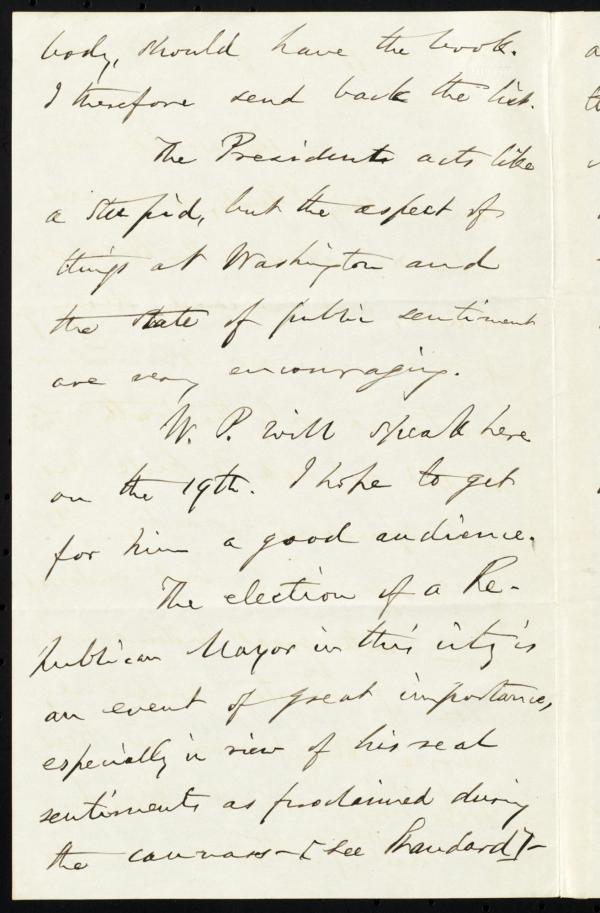 body, should have the book.
I therefore send back the list.
The President acts like
a stupid, but the aspect of
things at Washington and
the state of public sentiment
are very encouraging.
W. P. will speak here
on the 19th. I hope to get
for him a good audience.
The election of a Re-
publican Mayor in this city is
an event of great importance,
especially in view of his real
sentiments as proclaimed during
the canvass—[see Standard]—